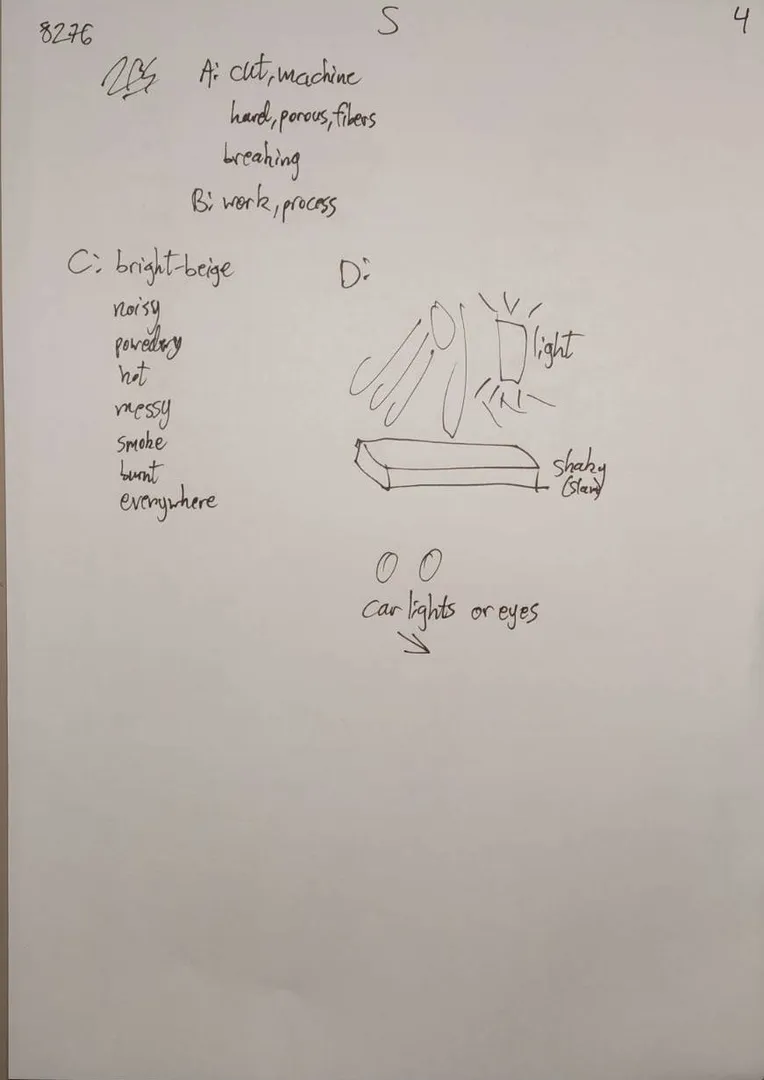 8276 S 4
A: cut, machine
hard, porous, fibers
breaking
B: work, process
C: bright-beige
noisy
powedery
hot
messy
smoke
burnt
everywhere
D:
light
shaky
car lights or eyes